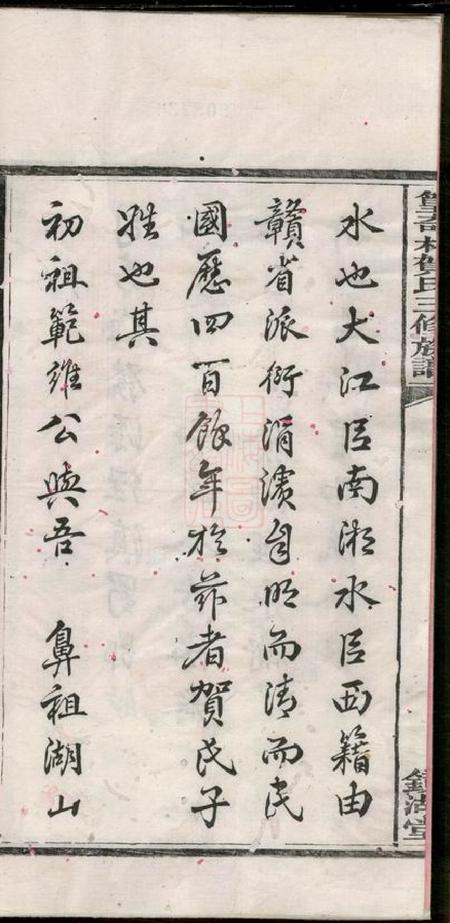 村賀氏三修族譜
鑑湖堂
水也大江㠯南湘水㠯西籍由
贛省派衍涓濱自明而清而民
國歷四百餘年於茲者賀氏子
姓也其
初祖範維公與吾 鼻祖湖山